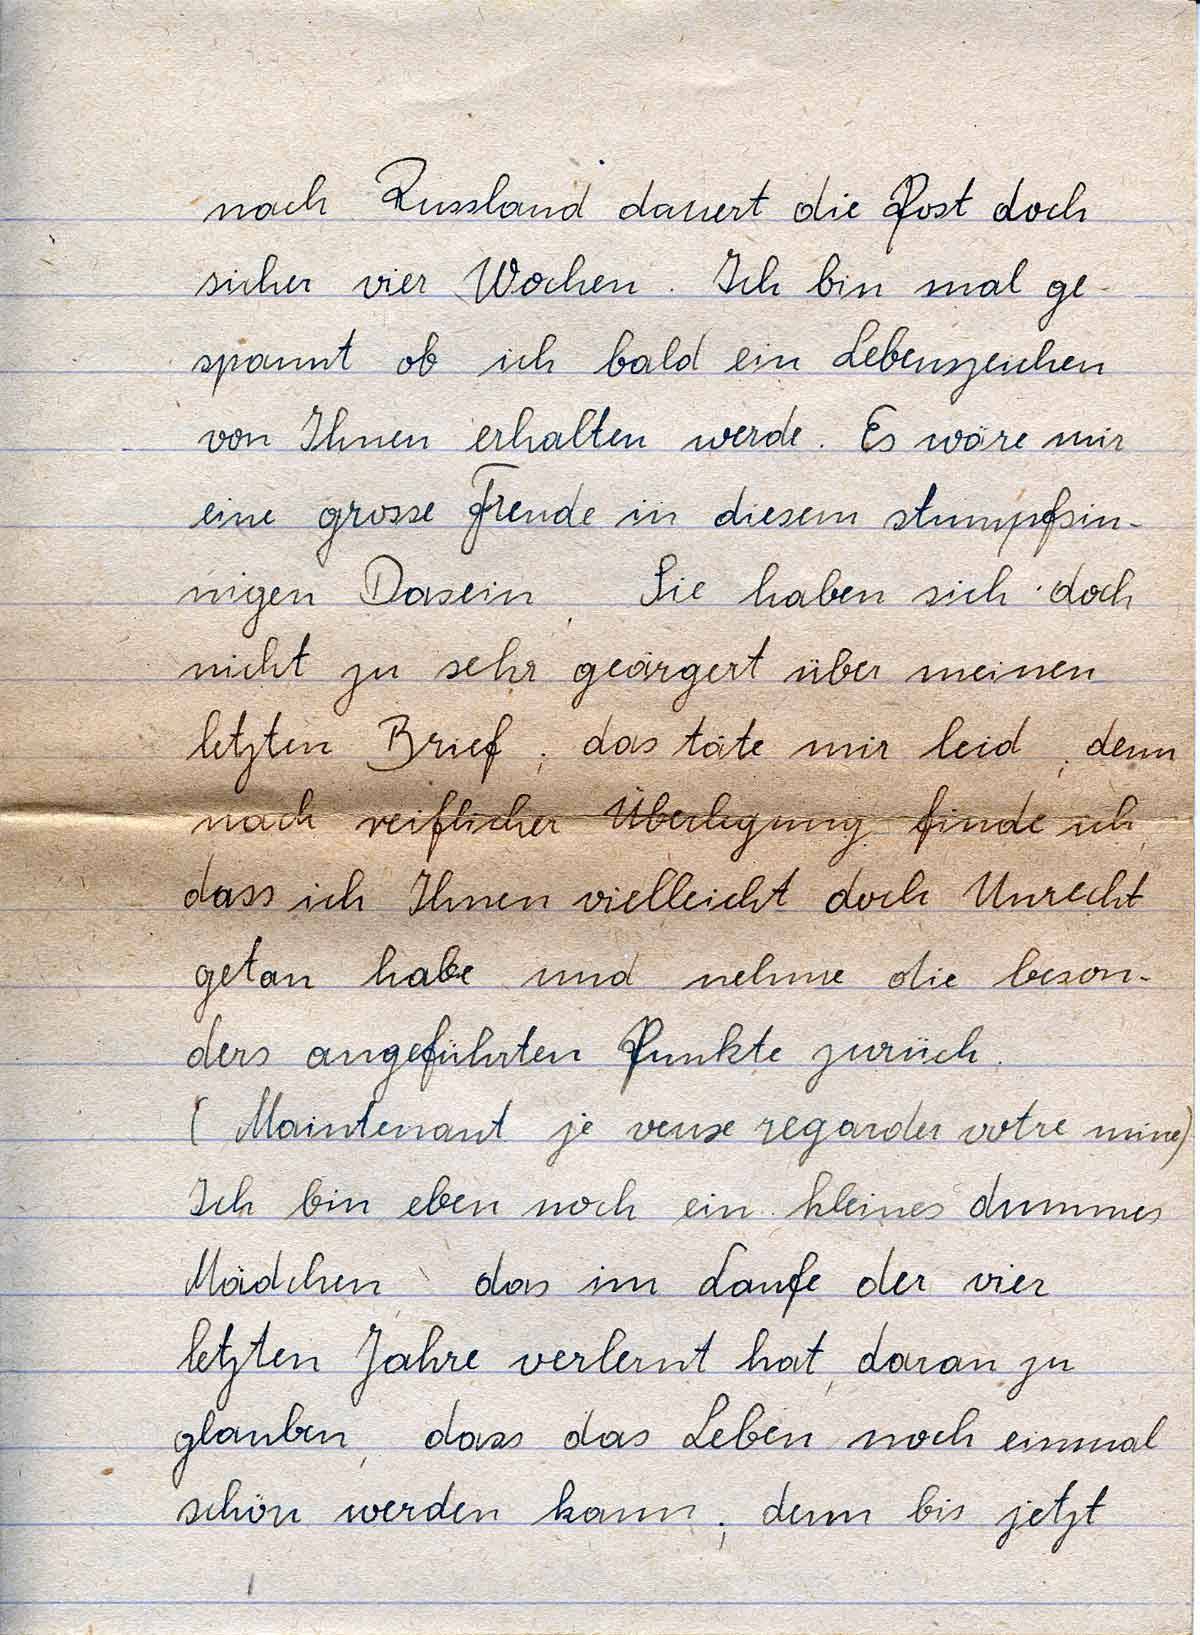 nach Russland dauert die Post doch
sicher vier Wochen. Ich bin mal ge-
spannt ob ich bald ein Lebenszeichen
von Ihnen erhalten werde. Es wäre mir
eine grosse Freude in diesem stumpfsin-
nigen Dasein. Sie haben sich doch
nicht zu sehr geärgert über meinen
letzten Brief, das täte mir leid, denn
nach reiflicher Überlegung finde ich,
dass ich Ihnen vielleicht doch Unrecht
getan habe und nehme die beson-
ders angeführten Punkte zurück.
(Maintenant je veuse regarder votre mine)
Ich bin eben noch ein kleines dummes
Mädchen, das im Laufe der vier
letzten Jahre verlernt hat, daran zu
glauben, dass das Leben noch einmal
schön werden kann, denn bis jetzt